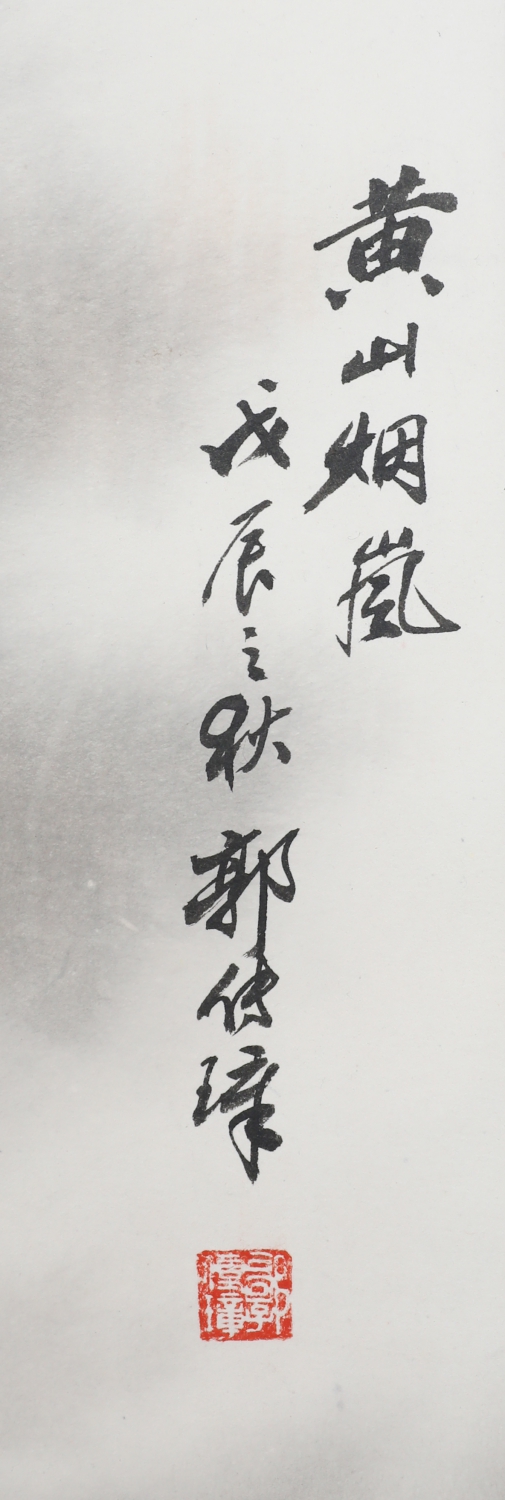 黄山烟嵐
戊辰之秋 郭传璋
郭傳璋